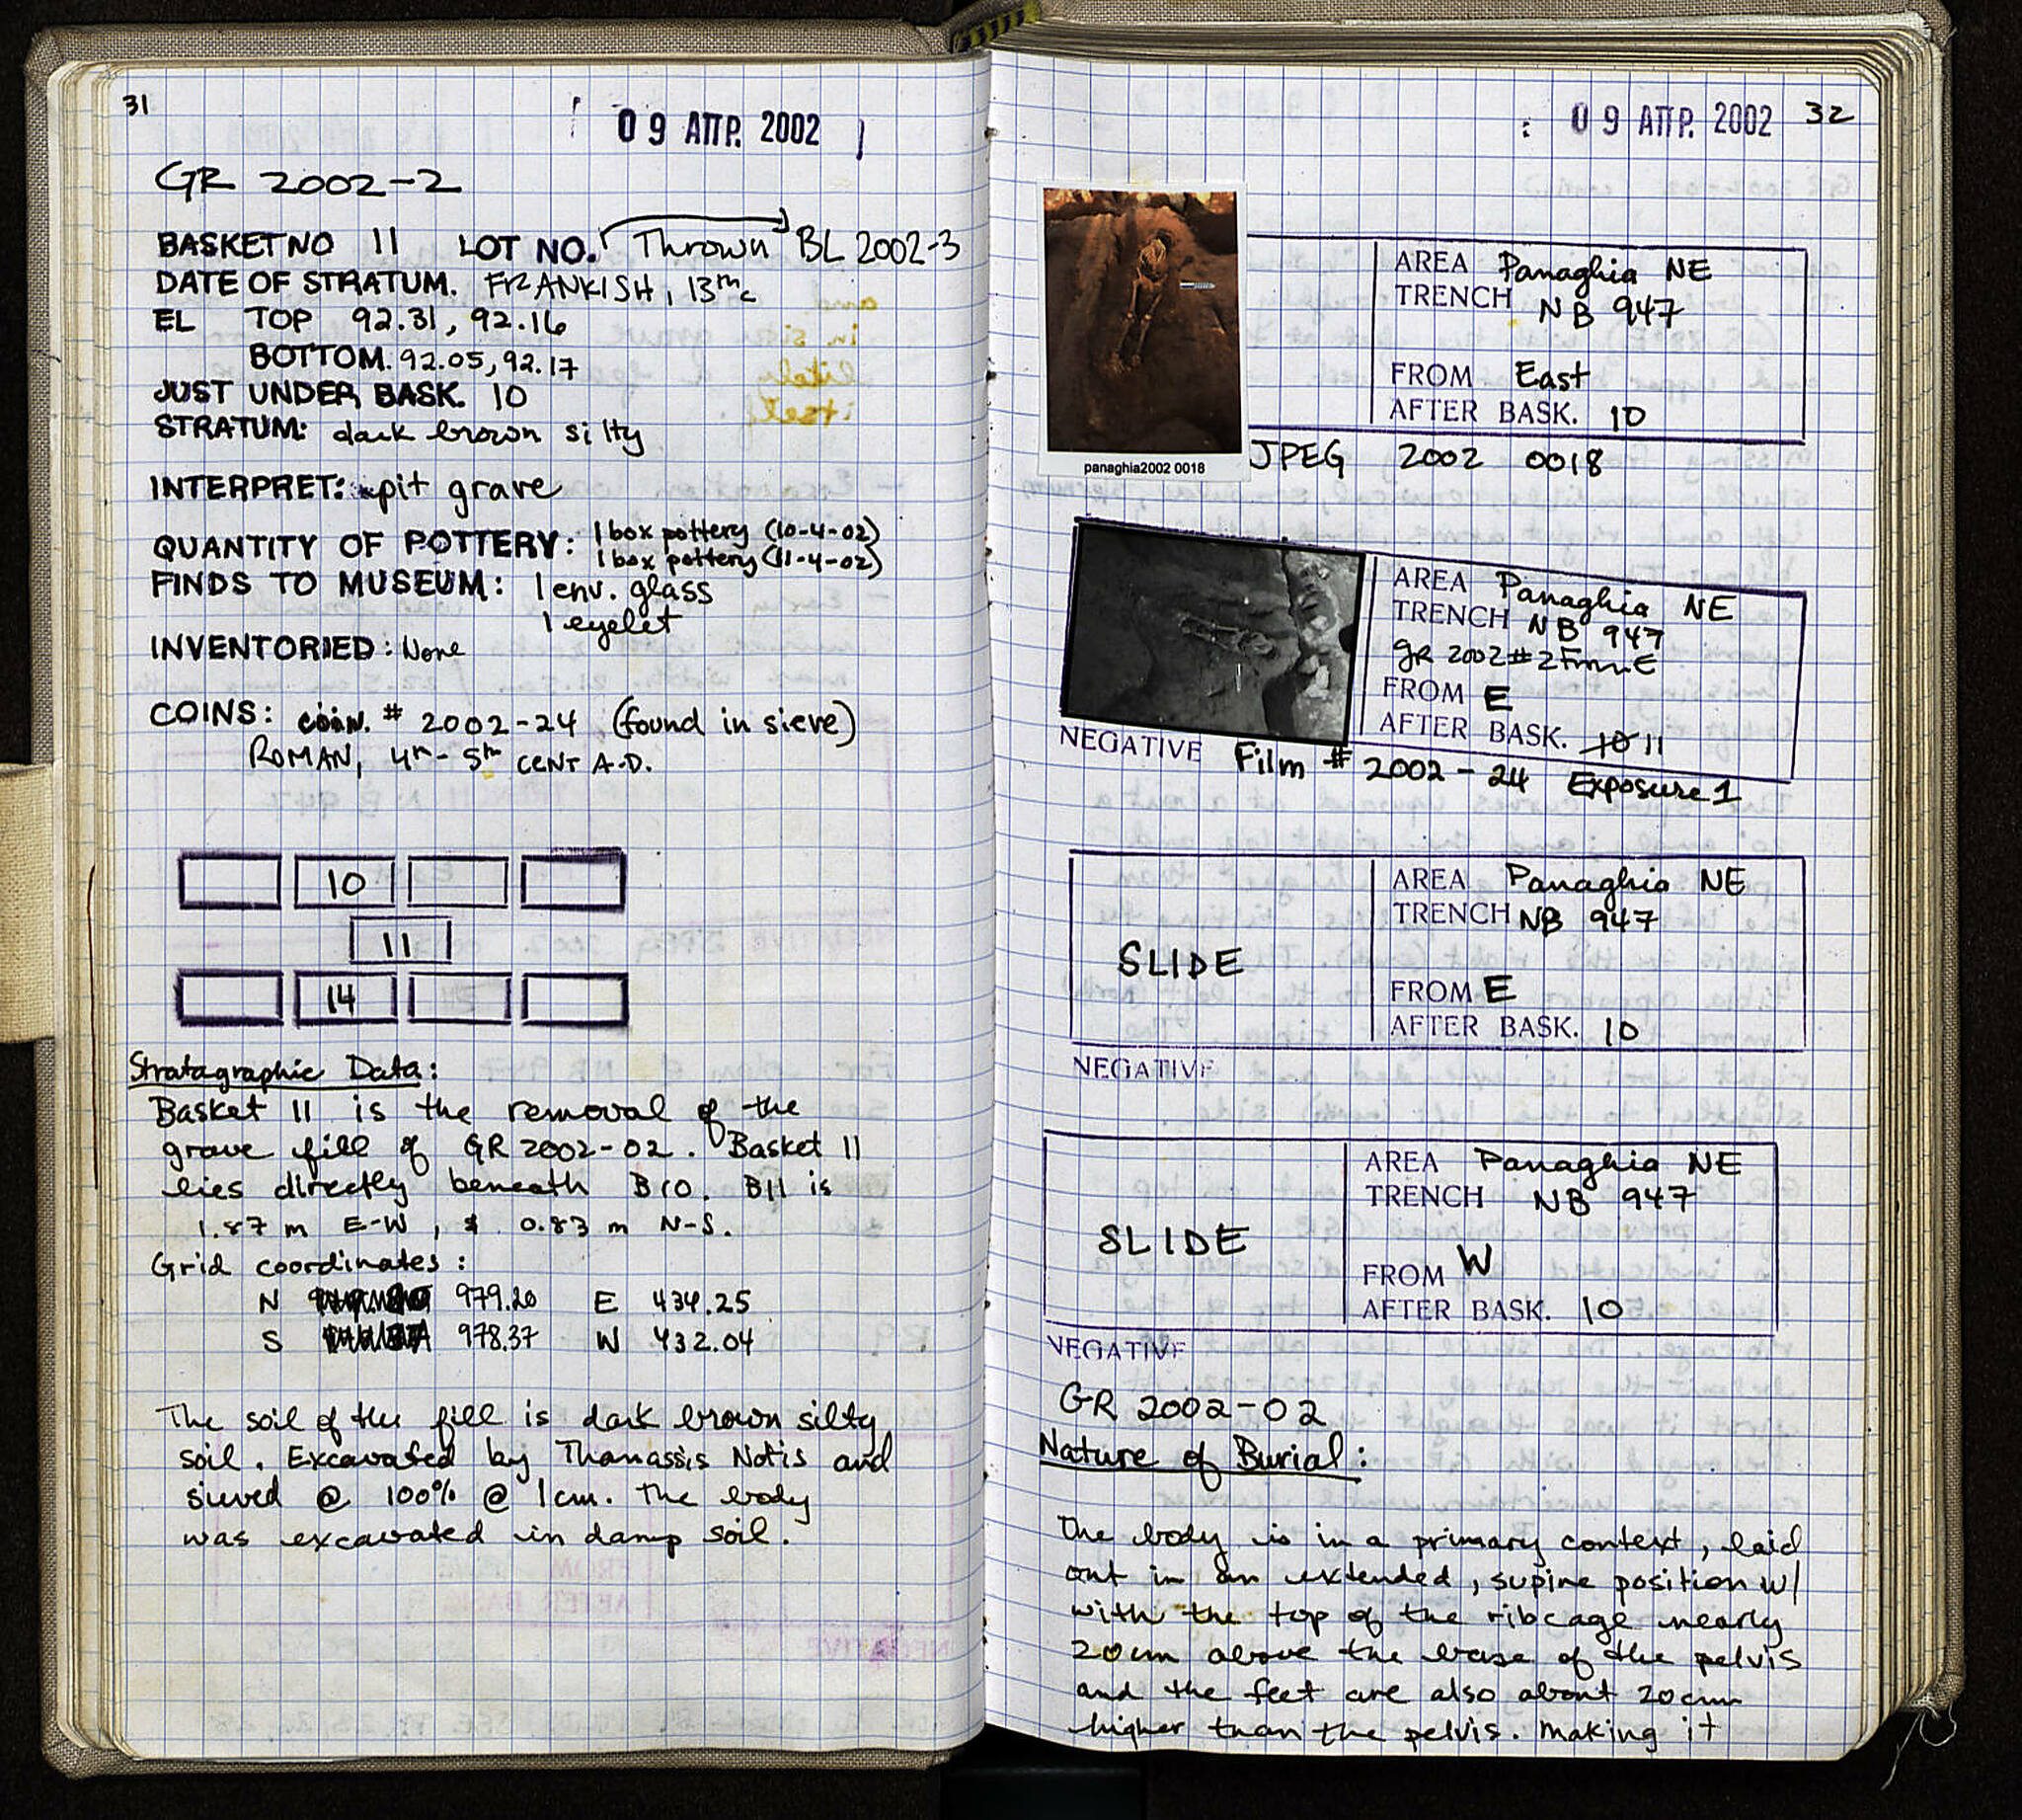 31
09 ΑΠΡ. 2002
GR 2002-2
BASKET NO 11 LOT NO. Thrown BL 2002-3
DATE OF STRATUM. FRANKISH, 13th c
EL TOP 92.31, 92.16
BOTTOM. 92.05, 92.17
JUST UNDER BASK. 10
STRATUM: dark brown silty
INTERPRET: pit grave
QUANTITY OF POTTERY: 1 box pottery (10-4-02)
1 box pottery (11-4-02)
FINDS TO MUSEUM: 1 env. glass
1 eyelet
INVENTORIED: None
COINS: coin. # 2002-24 (found in sieve)
ROMAN, 4th - 5th CENT A.D.
10
11
14
Stratagraphic Data:
Basket 11 is the removal of the
grave fill of GR 2002-02. Basket 11
lies directly beneath B10. B11 is
1.87 m E-W, & 0.83 m N-S.
Grid coordinates:
N 979.20 E 434.25
S 978.37 W 432.04
The soil of the fill is dark brown silty
soil. Excavated by Thanassis Notis and
sieved @ 100% @ 1cm. The body
was excavated in damp soil.
09 ΑΠΡ. 2002 32
AREA Panaghia NE
TRENCH NB 947
FROM East
AFTER BASK. 10
panaghia2002 0018
JPEG 2002 0018
AREA Panaghia NE
TRENCH NB 947
GR 2002 #2 From E
FROM E
AFTER BASK. 10 11
NEGATIVE Film # 2002-24 Exposure 1
SLIDE
AREA Panaghia NE
TRENCH NB 947
FROM E
AFTER BASK. 10
NEGATIVE
SLIDE
AREA Panaghia NE
TRENCH NB 947
FROM W
AFTER BASK. 10
NEGATIVE
GR 2002-02
Nature of Burial:
The body is in a primary context, laid
out in an extended, supine position w/
with the top of the ribcage nearly
20cm above the base of the pelvis
and the feet are also about 20cm
higher than the pelvis. making it